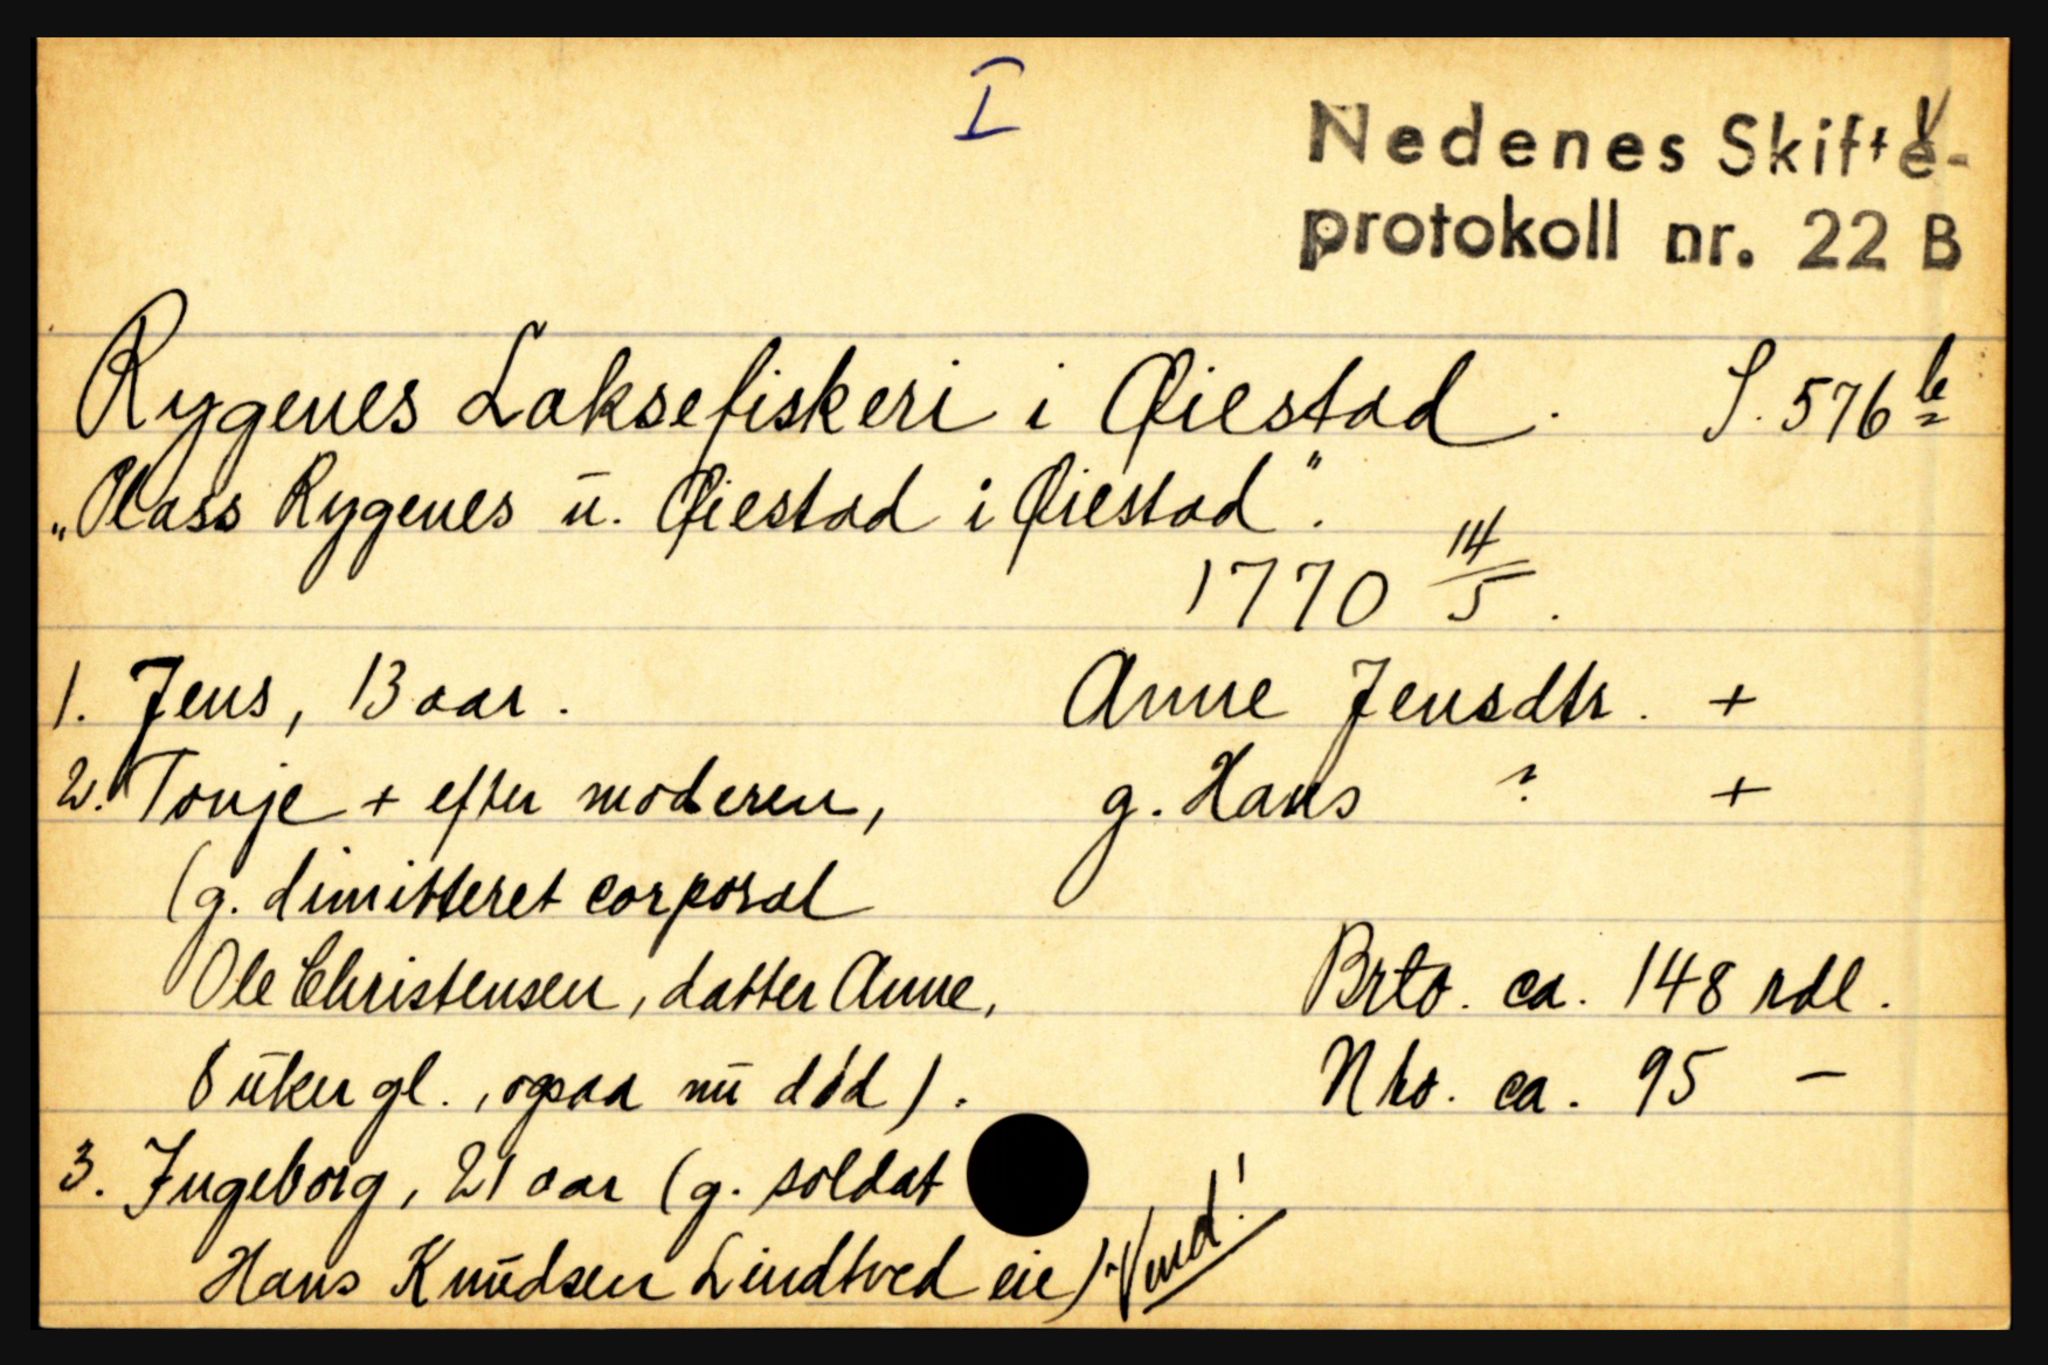 I
Nedenes Skifte-
protokoll nr. 22 B
Rygenes Laksefiskeri i Øiestad. S. 576 b
"Plass Rygenes u. Øiestad i Øiestad".
1770 14/5.
1. Jens, 13 aar. Anne Jensdtr. +
2. Tonje + efter moderen, g. Hans ? +
(g. dimitteret corporal
Ole Christensen, datter Anne, Brto. ca. 148 rdl.
8 uker gl., ogsaa nu død). Nto. ca. 95 -
3. Ingeborg, 21 aar (g. soldat
Hans Knudsen Lindtved eie) Vend!